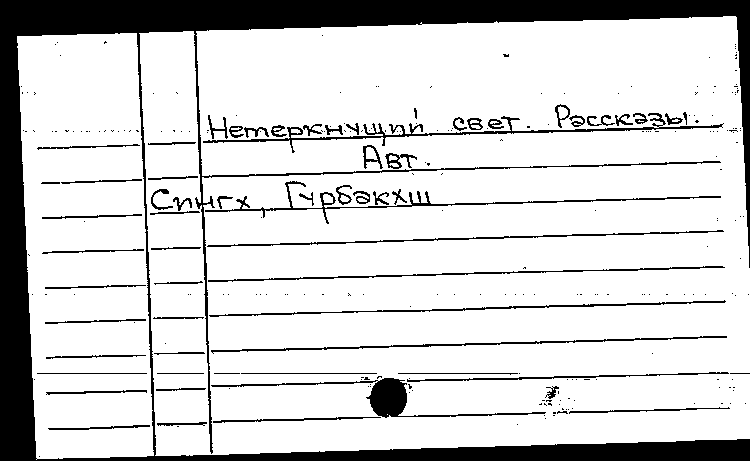 Нетеркнущий свет. Рассказы.
Авт.
Сингх, Гурбакхш